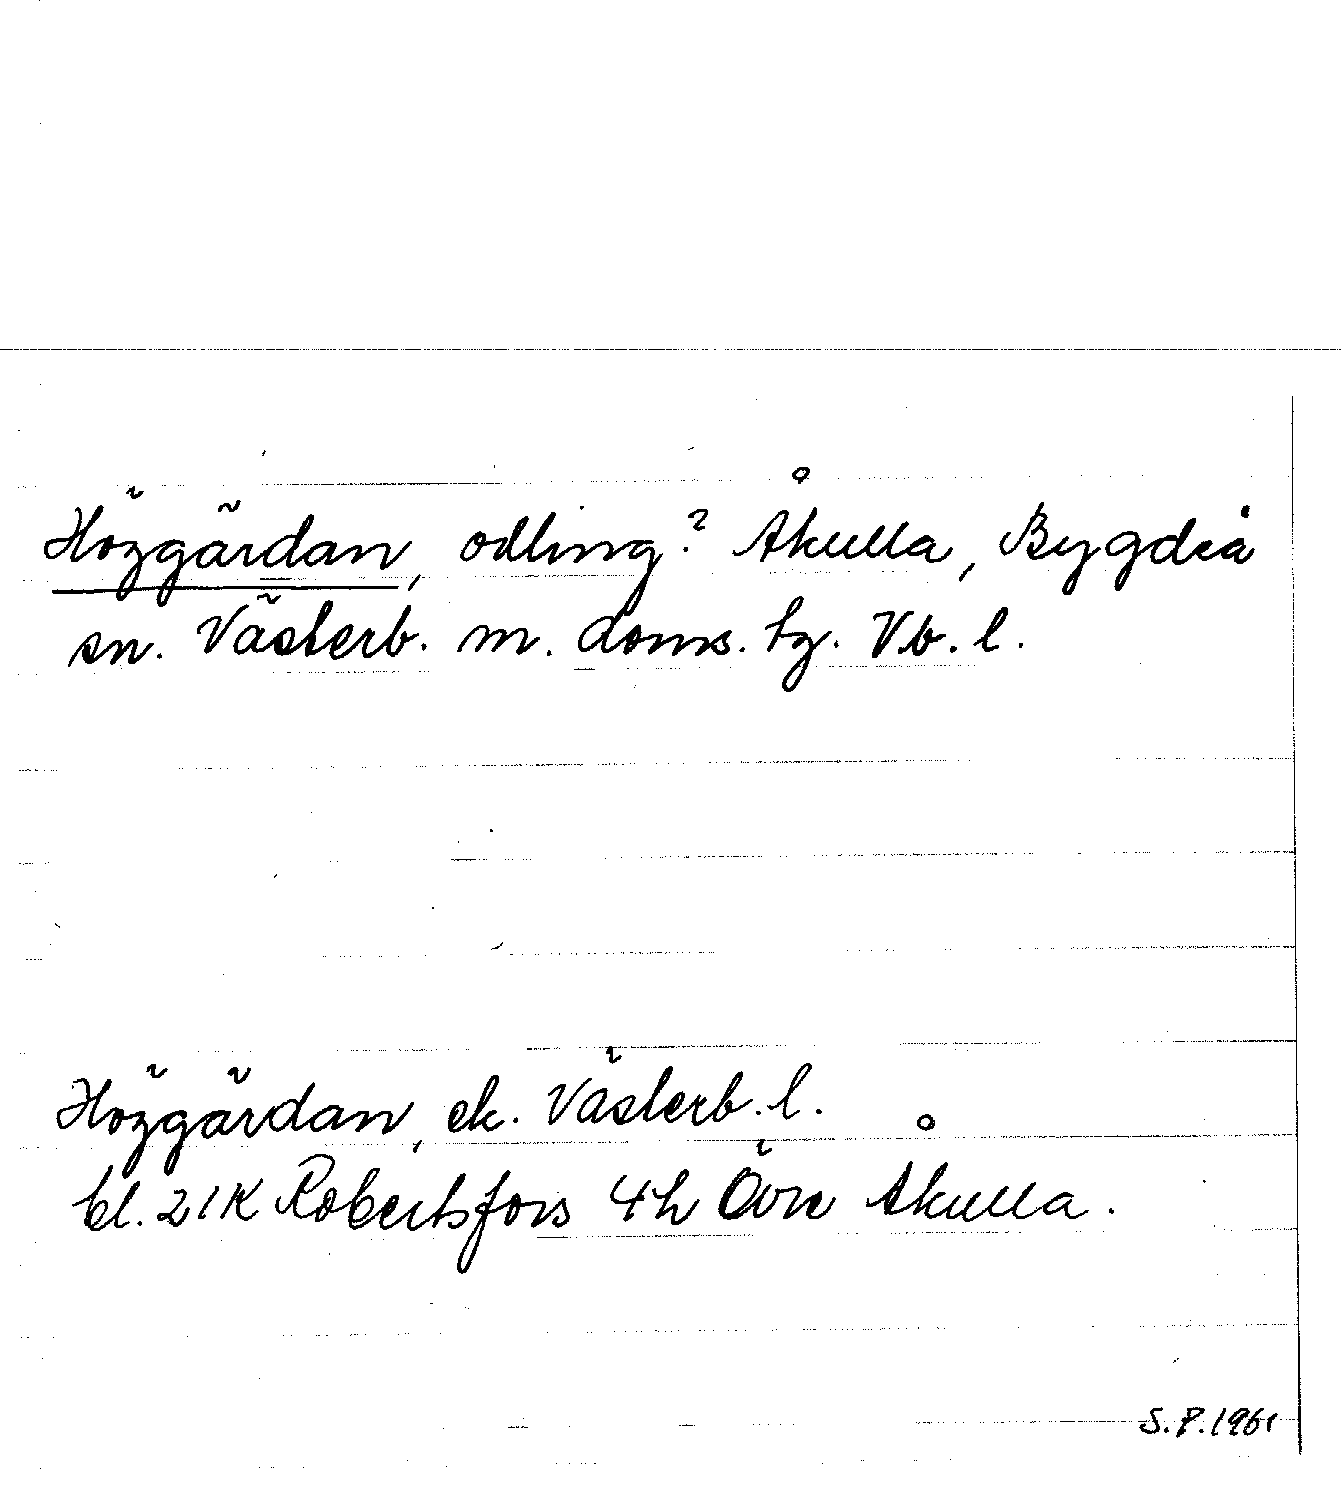 Höggärdan, odling? Åkulla, Bygdeå
sn. Västerb. m. doms. tg. Vb. l.
Höggärdan, ek. Västerb. l.
bl. 21K Robertsfors 4h Övre Åkulla.
S.P. 1961